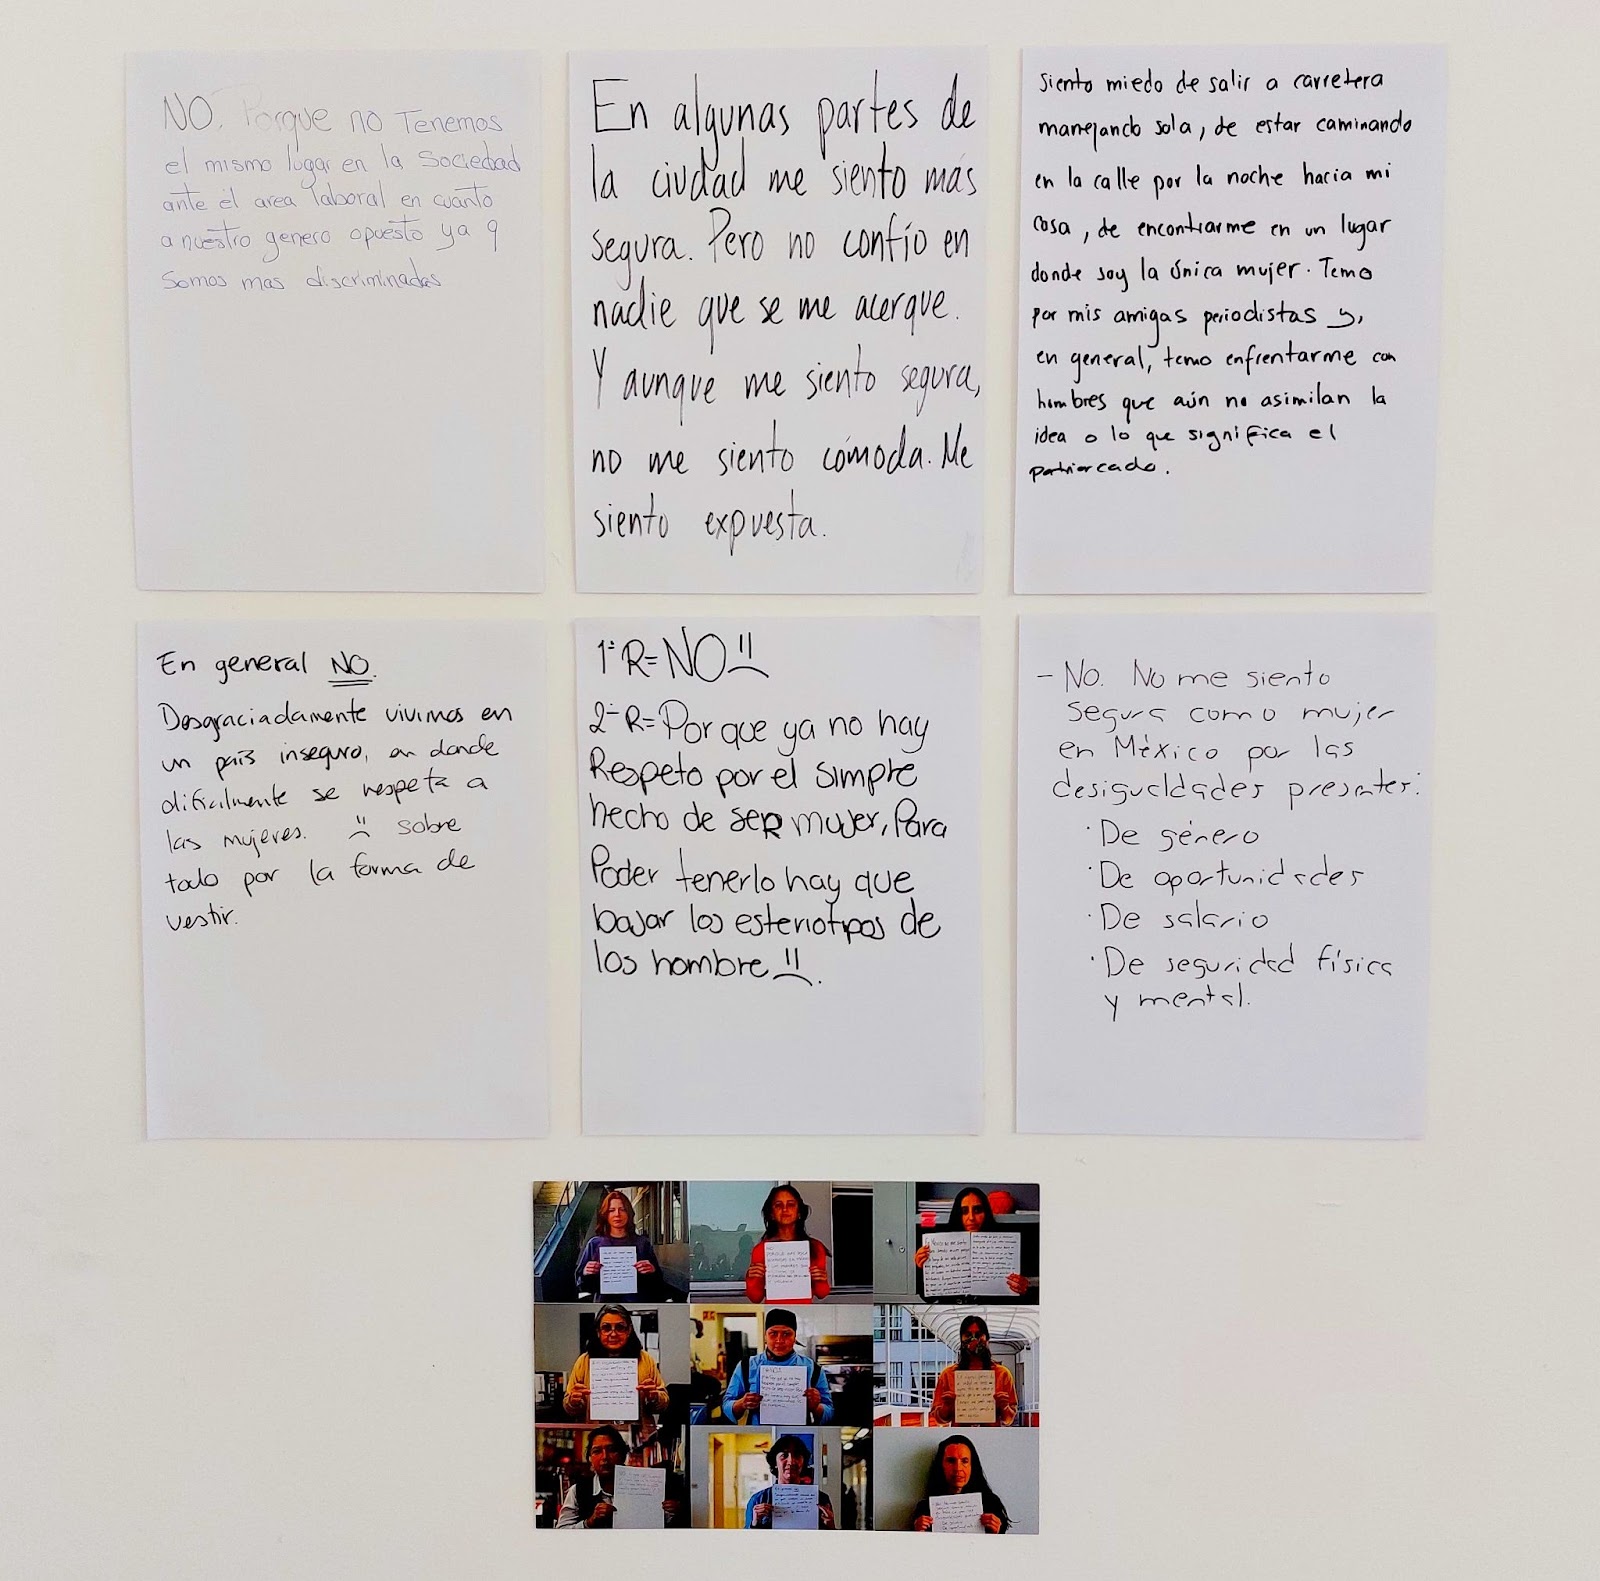 NO. Porque no Tenemos
el mismo lugar en la Sociedad
ante él area laboral en cuanto
a nuestro genero opuesto ya q
Somos mas discriminadas
En algunas partes de
la ciudad me siento más
segura. Pero no confío en
nadie que se me acerque.
Y aunque me siento segura,
no me siento cómoda. Me
siento expuesta.
Siento miedo de salir a carretera
manejando sola, de estar caminando
en la calle por la noche hacia mi
casa, de encontrarme en un lugar
donde soy la única mujer. Temo
por mis amigas periodistas y,
en general, temo enfrentarme con
hombres que aún no asimilan la
idea o lo que significa el
patriarcado.
En general NO.
Desgraciadamente vivimos en
un país inseguro, en donde
dificilmente se respeta a
las mujeres. sobre
todo por la forma de
vestir.
1-R=NO
2-R=Porque ya no hay
Respeto por el simple
hecho de ser mujer, Para
Poder tenerlo hay que
bajar los esteriotipos de
los hombre.
- No. No me siento
segura como mujer
en México por las
desigualdades presentes:
· De género
· De oportunidades
· De salario
· De seguridad física
y mental.